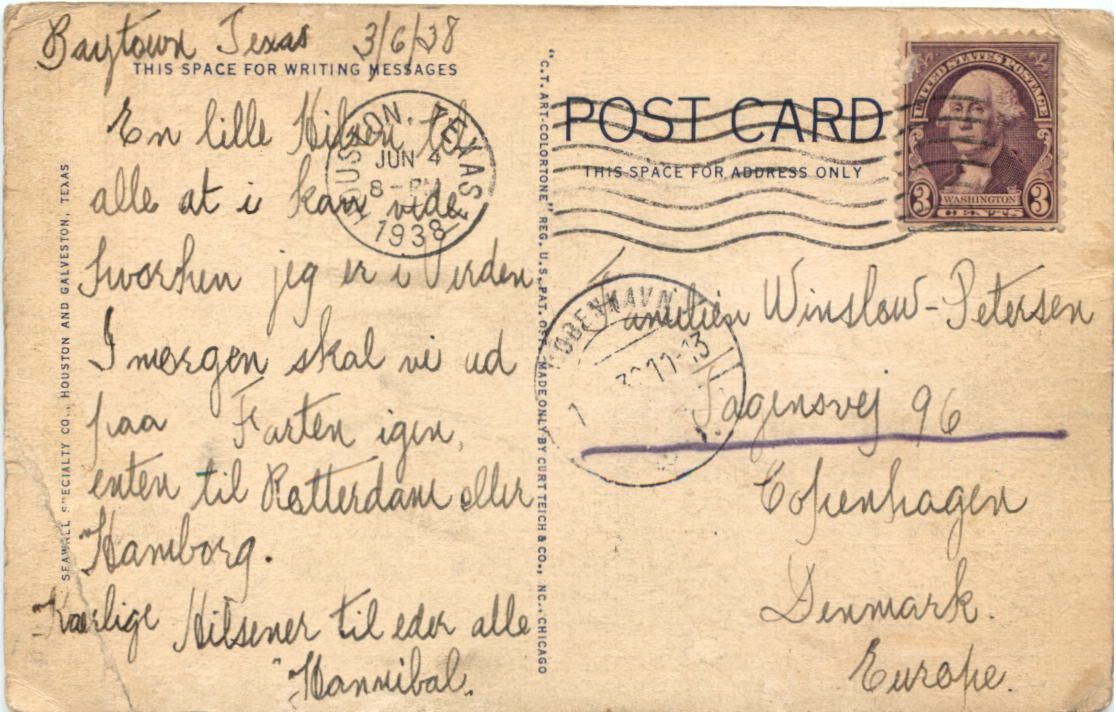 Baytown Texas 3/6/38
THIS SPACE FOR WRITING MESSAGES
En lille Hilsen til
alle at i kan vide
hvorhen jeg er i Verden
I morgen skal vi ud
paa Farten igen,
enten til Rotterdam eller
Hamborg.
Kærlige Hilsener til eder alle
Hannibal.
SEAWALL SPECIALTY CO., HOUSTON AND GALVESTON, TEXAS
"C.T. ART-COLORTONE" REG. U.S. PAT. OFF. MADE ONLY BY CURT TEICH & CO., INC., CHICAGO
HOUSTON, TEXAS
JUN 4
8 - PM
1938
POST CARD
THIS SPACE FOR ADDRESS ONLY
UNITED STATES POSTAGE
WASHINGTON
3 CENTS 3
KØBENHAVN
11-13
1
Familien Winslow-Petersen
Tagensvej 96
Copenhagen
Denmark.
Europe.